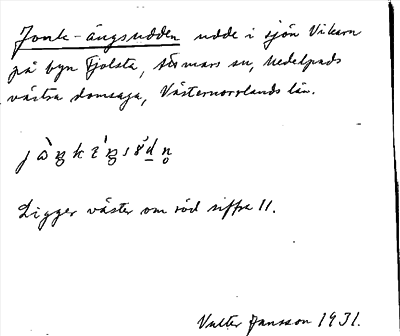 Jonk-ängsudden udde i sjön Vikarn
på byn Fjolsta, Stö mars sn, Medelpads
västra domsaga, Västernorrlands län.
Ligger väster om röd siffra 11.
Valter Jansson 1931.